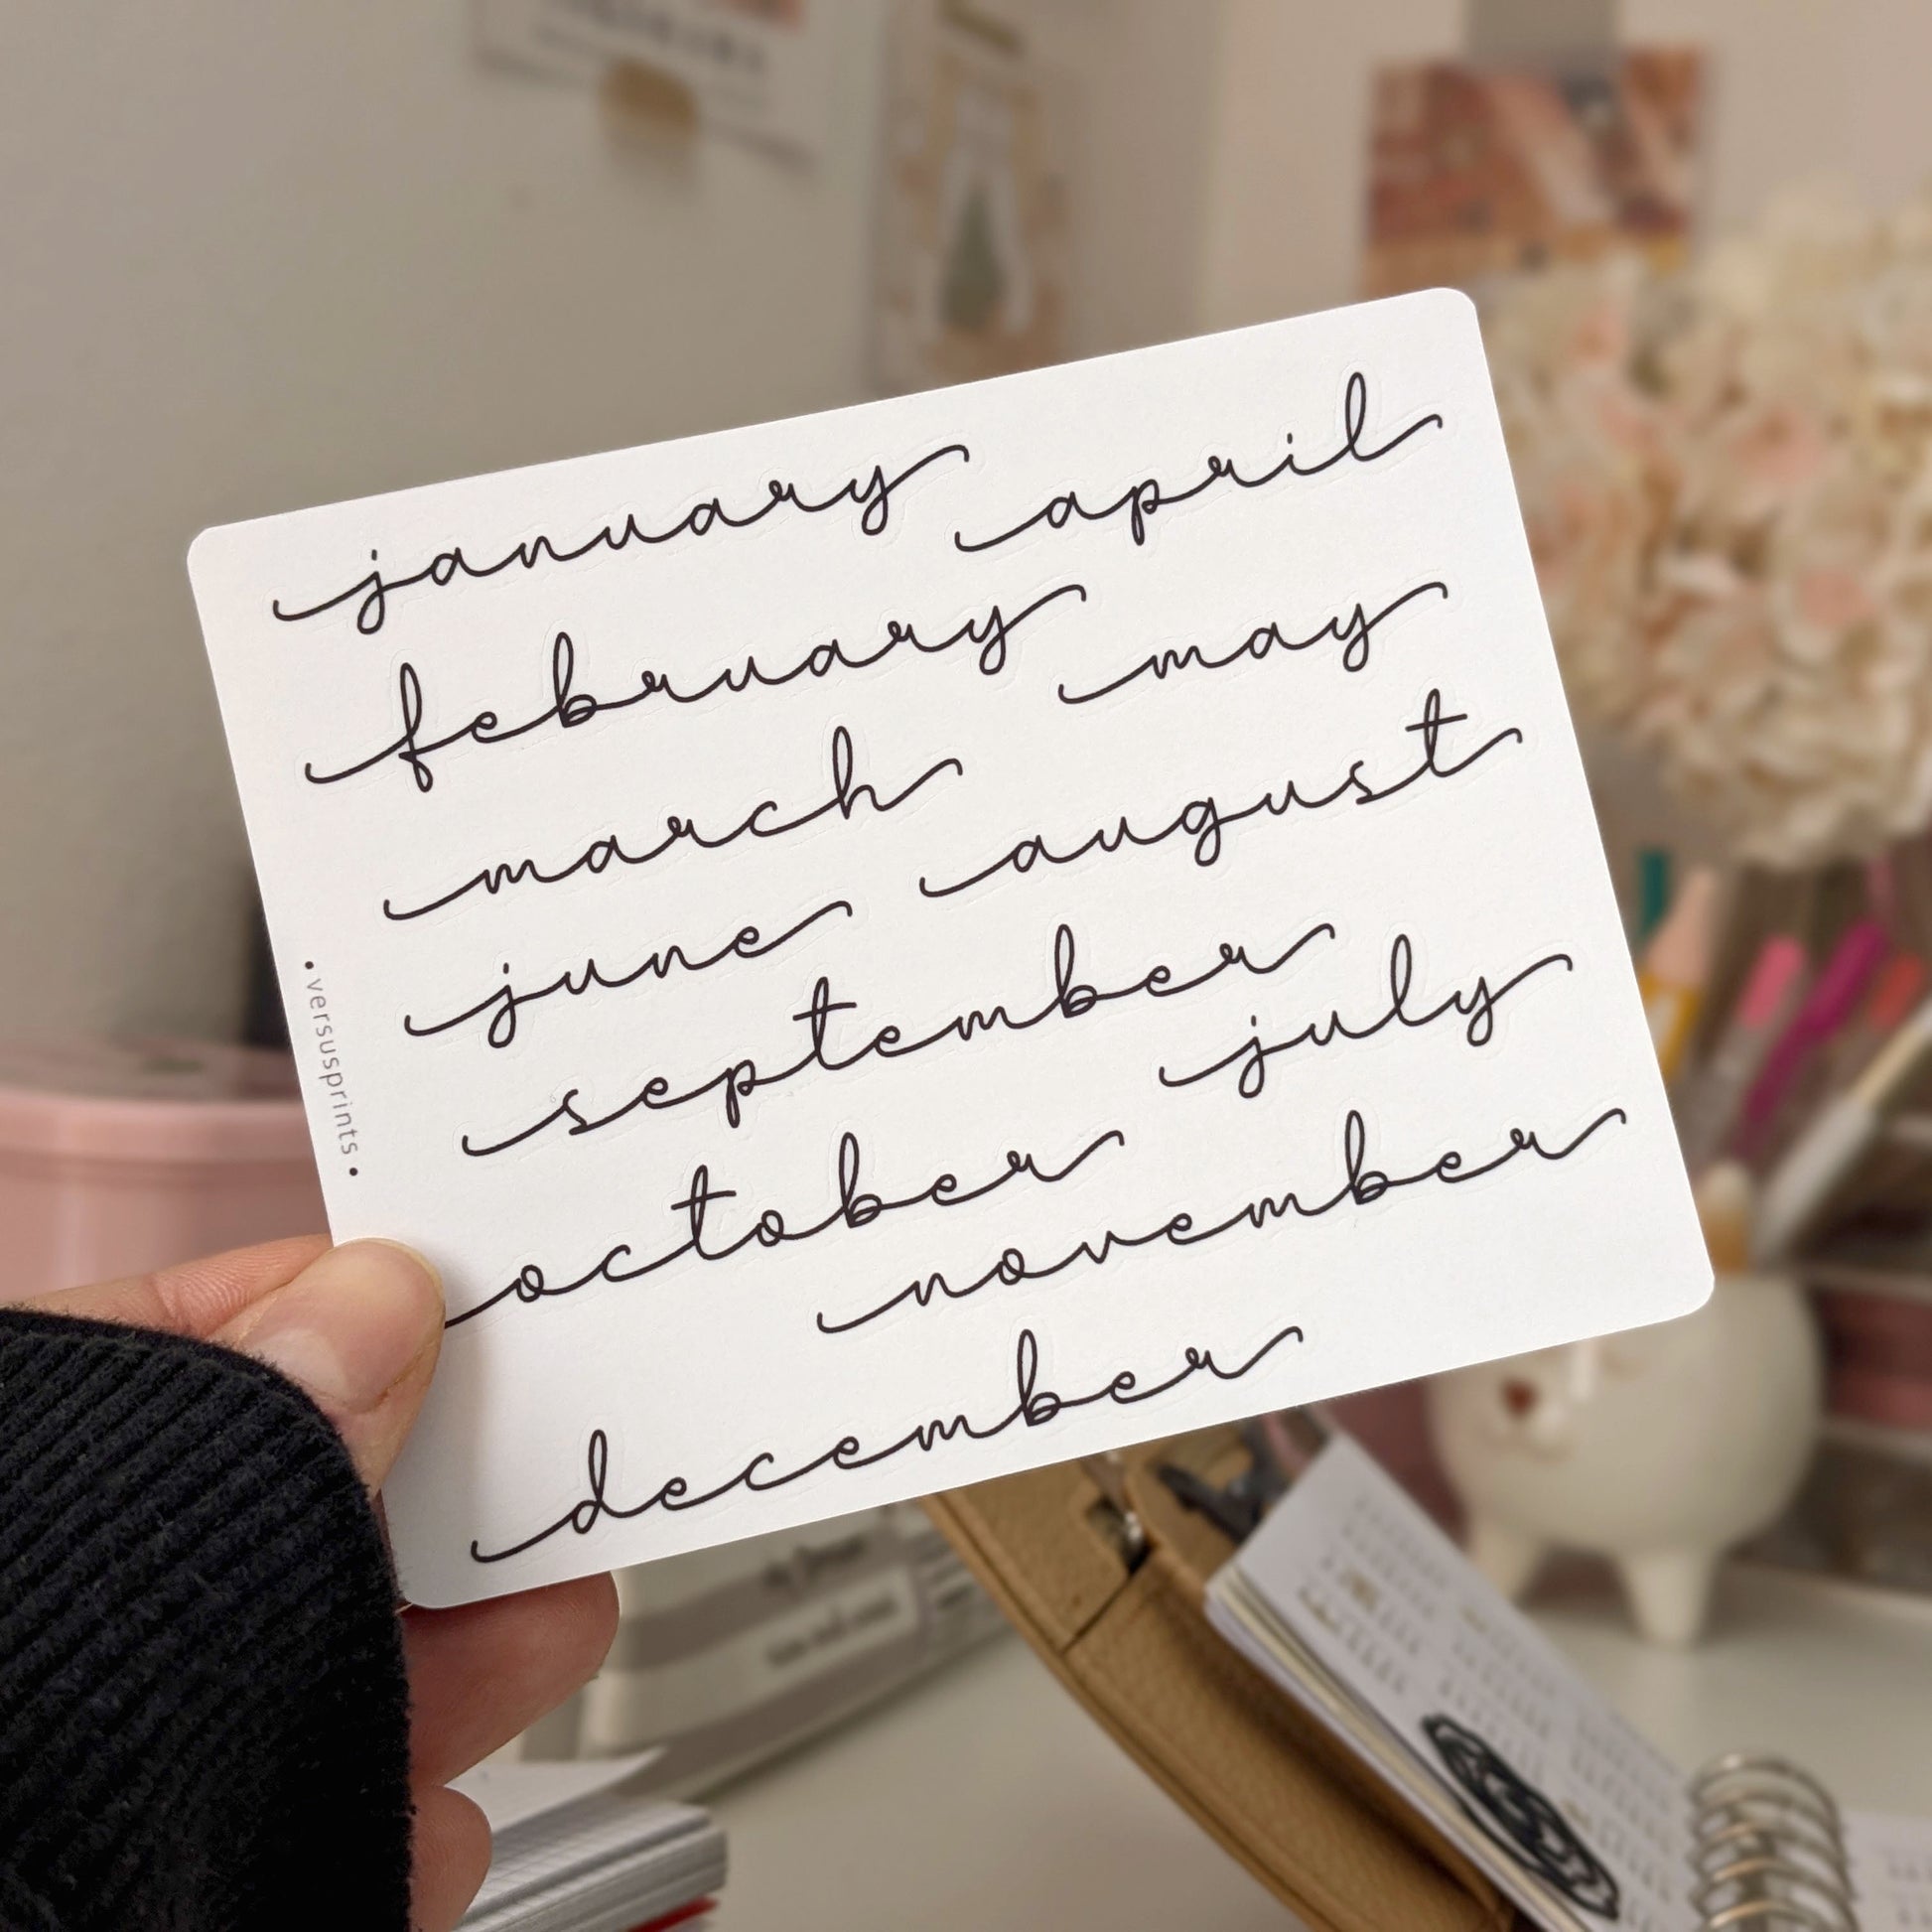 january april
february may
march august
june
september july
october november
december
• versusprints •